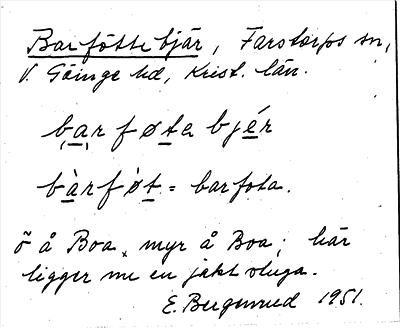 Barföttebjär, Farstorps sn,
V. Göinge hd, Krist. län.
barføta bjér
bàrføt = barfota.
å Boa, myr å Boa; här
ligger nu en jaktstuga.
E. 1951.